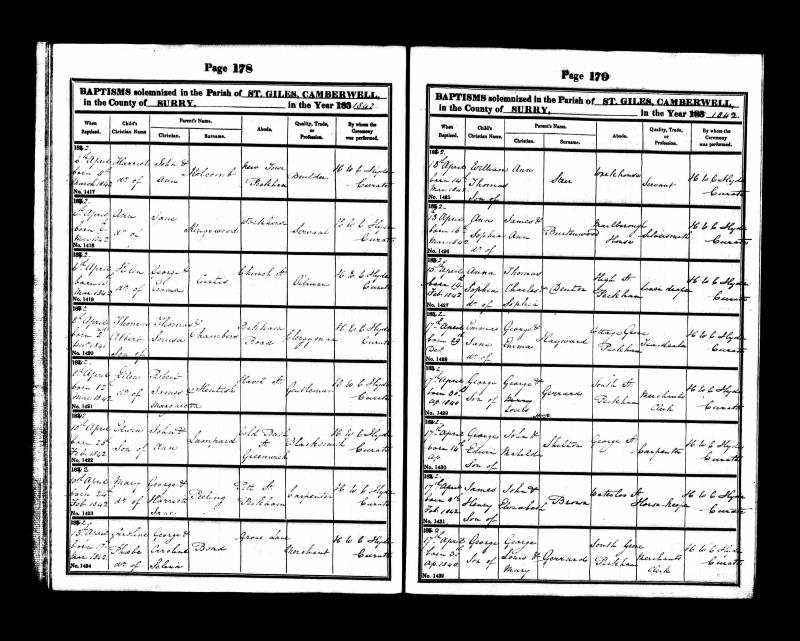 Page 178
BAPTISMS solemnized in the Parish of ST. GILES, CAMBERWELL,
in the County of SURRY, in the Year 183 1842
When Baptised. Child's Christian Name Parent's Name. Christian. Surname. Abode. Quality, Trade, or Profession. By whom the Ceremony was performed.
6th April born March 1842 Harriet dr of John & Ann Holcomb New Town Peckham Builder H W C Hyde Curate
No. 1417
April born Mar 1842 Ann dr of Jane Kingswood Workhouse Servant H W C Hyde Curate
No. 1418
6th April born Mar 1842 Helen dr of George & Emma Curtis Church St Oilman H W C Hyde Curate
No. 1419
April born 1841 Thomas Albert Son of Thomas & Louisa Chambers Peckham Road Clergyman H W C Hyde Curate
No. 1420
April born 12 Mar 1842 Ellen dr of Robert James & Margaretta Havil St Gentleman H W C Hyde Curate
No. 1421
10th April born Feb 1842 Edwin Son of John & Ann Lumpard St Greenwich Blacksmith H W C Hyde Curate
No. 1422
10th April born 24 Feb 1842 Mary dr of George & Harriett Jane Peeling St Peckham Carpenter H W C Hyde Curate
No. 1423
13th April born Mar 1842 Caroline Phoebe dr of George & Caroline Selina Bond Grove Lane Merchant H W C Hyde Curate
No. 1424
Page 179
BAPTISMS solemnized in the Parish of ST. GILES, CAMBERWELL,
in the County of SURRY, in the Year 183 1842
When Baptised. Child's Christian Name Parent's Name. Christian. Surname. Abode. Quality, Trade, or Profession. By whom the Ceremony was performed.
13th April born 14th Mar 1842 William Thomas Son of Ann Steer Workhouse Servant H W C Hyde Curate
No. 1425
13 April born 16th Mar 1842 Ann Sophia dr of James & Ann Burtenwood Marlborough House Silversmith H W C Hyde Curate
No. 1426
15th April born 19 Feb 1842 Anna Sophia dr of Thomas Charles & Sophia Benton High St Peckham Linen draper H W C Hyde Curate
No. 1427
17th April born 29 Dec Emma Jane dr of George & Emma Hayward Cottage Grove Peckham H W C Hyde Curate
No. 1428
17th April born 30th Ap 1840 George Son of George & Louis Gerrard South St Peckham Merchants Clerk H W C Hyde Curate
No. 1429
17th April born 14th Ap George Edwin Son of John & Matilda Shilton George St Carpenter H W C Hyde Curate
No. 1430
17th April born 8th Feb 1842 James Henry Son of John & Elizabeth Brown Waterloo St Horse keeper H W C Hyde Curate
No. 1431
17th April born Ap 1840 George Son of George Louis & Mary Gerrard South Grove Peckham Merchants Clerk H W C Hyde Curate
No. 1432